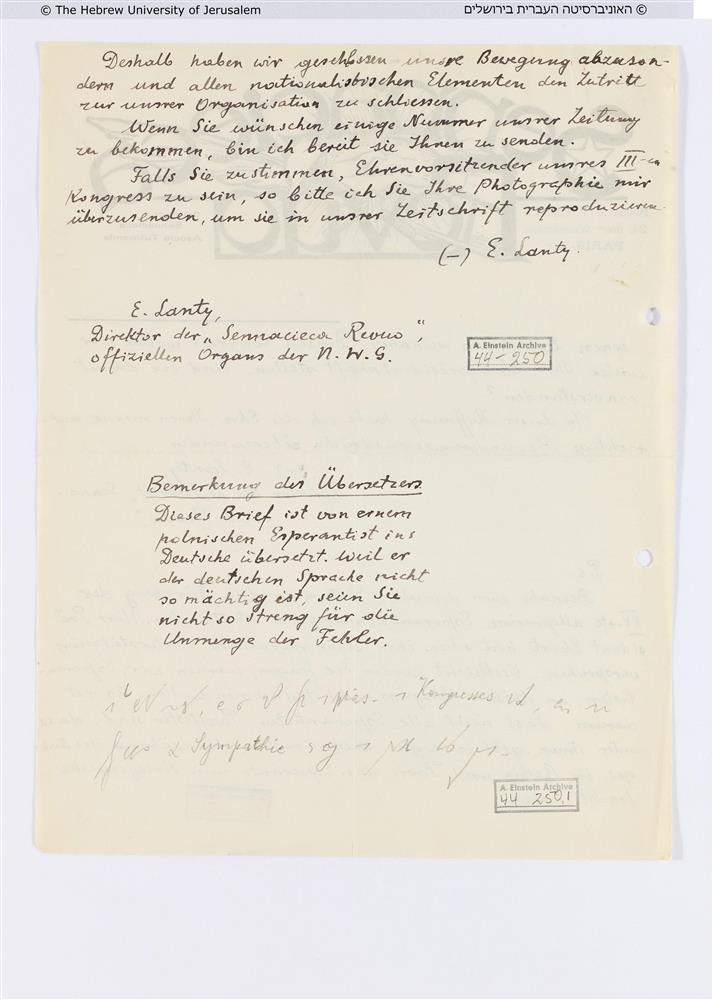 © The Hebrew University of Jerusalem
© האוניברסיטה העברית בירושלים
Deshalb haben wir geschlossen unsre Bewegung abzuson-
dern und allen nationalistischen Elementen den Zutritt
zur unsrer Organisation zu schliessen.
Wenn Sie wünschen einige Nummer unsrer Zeitung
zu bekommen, bin ich bereit sie Ihnen zu senden.
Falls Sie zustimmen, Ehrenvorsitzender unsres III-en
Kongress zu sein, so bitte ich Sie Ihre Photographie mir
überzusenden, um sie in unsrer Zeitschrift reproduzieren.
(-) E. Lanty.
E. Lanty,
Direktor der „Sennacieca Revuo",
offiziellen Organs der N. W. G.
A. Einstein Archive
44 - 250
Bemerkung des Übersetzers
Dieses Brief ist von einem
polnischen Esperantist ins
Deutsche übersetzt. Weil er
der deutschen Sprache nicht
so mächtig ist, seien Sie
nicht so streng für die
Unmenge der Fehler.
Kongresses
Sympathie
A. Einstein Archive
44 250,1